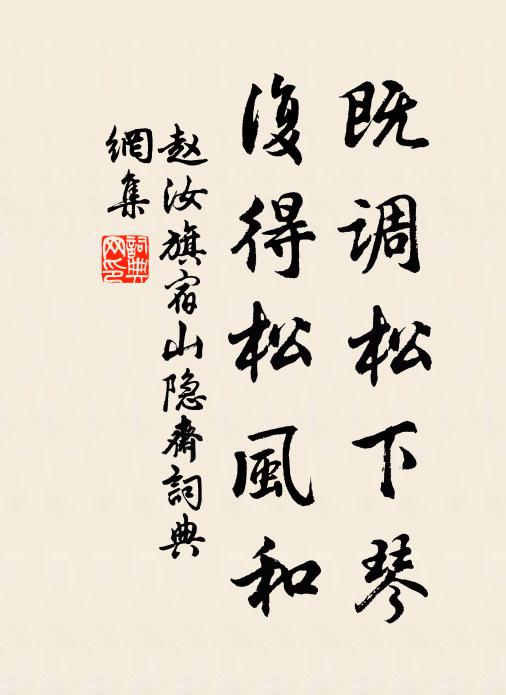 既调松下琴
復得松風和
赵汝旗宿山隐齋詞典
網集
詞典
网印